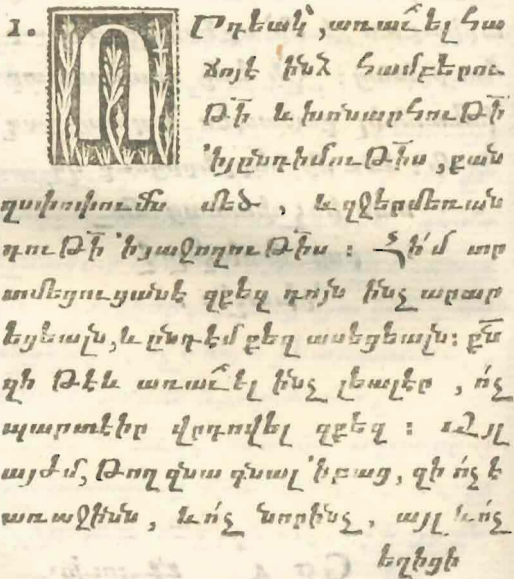 1. ՈՐդեակ՝, առաւ՛ել հա
ճոյէ ինձ համբերու
թի̅ և խոնարհութի̅
՚իյընդիմութի̅ս, քան
զսփոփումն մեծ, և զջերմեռան
դութի̅ ՚իյաջողութի̅ս : Հի՛մ տր
տմեցուցանէ զքեզ դոյն ինչ արար
եցեալն, և ընդէմ քեզ ասեցեալն։ քն̅
զի թէև առաւ՛ել ինչ լեալէր, ո՛չ
պարտէիր վրդովել զքեզ : Այլ
այժմ, թող զնա գնալ ՚ի բաց, զի ո՛չ է
առաջինն, և ո՛չ նորինչ, այլ և ո՛չ
եղիցի